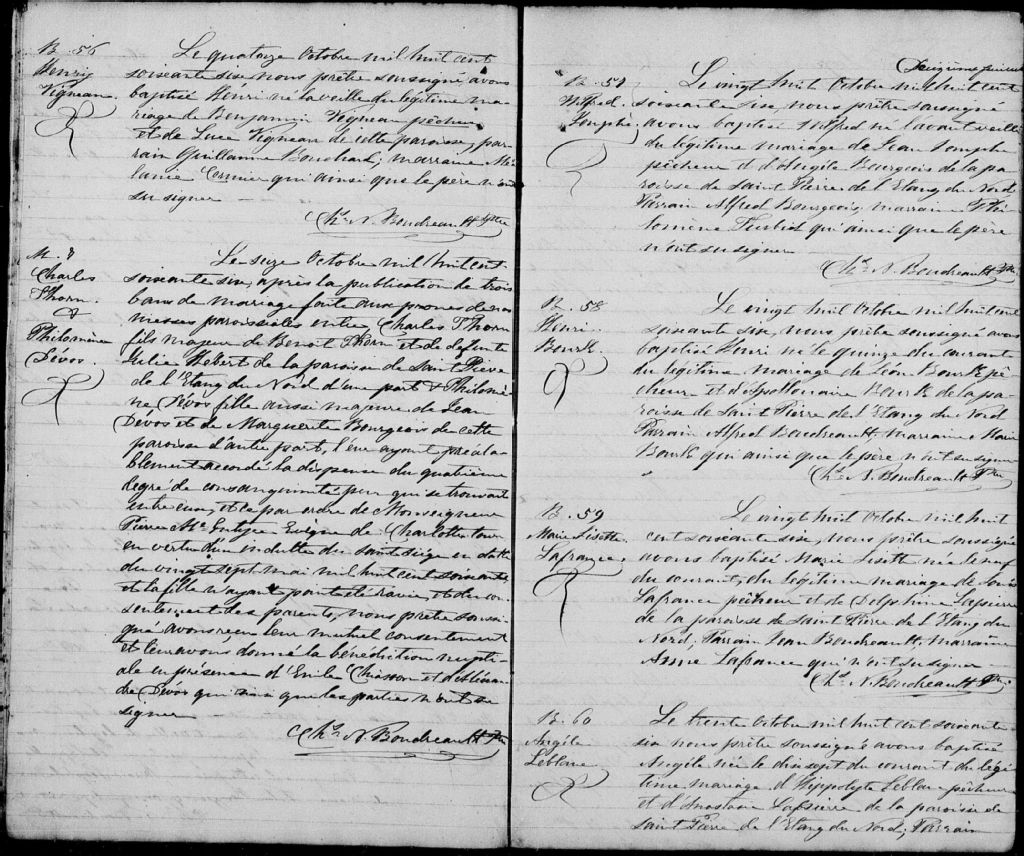 B. 56
Henri
Vigneau.
Le quatorze Octobre mil huit cent
soixante six nous prêtre soussigné avons
baptisé Henri né la veille du légitime ma-
riage de Benjamin Vigneau pêcheur
et de Luce Vigneau de cette paroisse, par-
rain Guillaume Boudrault, marraine Mé-
lanie Cormier qui ainsi que le père n'ont
su signer —
Chs. N. Boudreault Ptre
M. 8
Charles
Thorn.
&
Philomène
Dévos.
Le seize Octobre mil huit cent
soixante six, après la publication de trois
bans de mariage faite aux prônes de nos
messes paroissiales entre Charles Thorn
fils majeur de Benoit Thorn et de défunte
Julie Hébert de la paroisse de Saint Pierre
de l'Etang du Nord d'une part & Philomè-
ne Dévos fille aussi majeure de Jean
Dévos et de Marguerite Bourgeois de cette
paroisse d'autre part, l'
ayant préala-
blement accordé la dispense du quatrième
degré de consanguinité pur qui se trouvait
entre eux, et le par ordre de Monseigneur
Pierre McIntyre Evêque de Charlottetown
en vertu d'un indult du saint siège en date
du vingt sept mai mil huit cent soixante
et la fille n'ayant point
et du con-
sentement des parents, nous prêtre soussi-
gné avons reçu leur mutuel consentement
et leur avons donné la bénédiction nupti-
ale en présence d'Emile Chiasson et
de Dévos qui ainsi que les parties n'ont su
signer
Chs. N. Boudreault Ptre
B. 57
Wilfred.
Longuépée
Le vingt huit Octobre mil huit cent
soixante six nous prêtre soussigné
avons baptisé Wilfred né l'avant veille
du légitime mariage de Jean
pêcheur et d'Angèle Bourgeois de la pa-
roisse de Saint Pierre de l'Etang du Nord
Parrain Alfred Bourgeois, marraine Phi-
lomène Turbid qui ainsi que le père
n'ont su signer
Chs. N. Boudreault Ptre
B. 58
Henri.
Bourk.
Le vingt huit Octobre mil huit cent
soixante six, nous prêtre soussigné avons
baptisé Henri né le quinze du courant
du légitime mariage de Léon Bourk pê-
cheur et d'Appollonaire Bourk de la pa-
roisse de Saint Pierre de l'Etang du Nord
Parrain Alfred Boudreault, marraine Marie
Bourk qui ainsi que le père n'ont su signer
Chs. N. Boudreault Ptre
B. 59
Marie Lisette
Lafrance.
Le vingt huit Octobre mil huit
cent soixante six, nous prêtre soussigné
avons baptisé Marie Lisette née le neuf
du courant, du légitime mariage de Louis
Lafrance pêcheur et de Delphine Lapierre
de la paroisse de Saint Pierre de l'Etang du
Nord; Parrain Jean Boudreault, marraine
Anne Lafrance qui n'ont su signer —
Chs. N. Boudreault Ptre
B. 60
Angèle
Leblanc.
Le trente Octobre mil huit cent soixante
six nous prêtre soussigné avons baptisé
Angèle née le dix sept du courant du légi-
time mariage d'Hippolyte Leblanc pêcheur
et d'Anastasie Lapierre de la paroisse de
Saint Pierre de l'Etang du Nord; Parrain